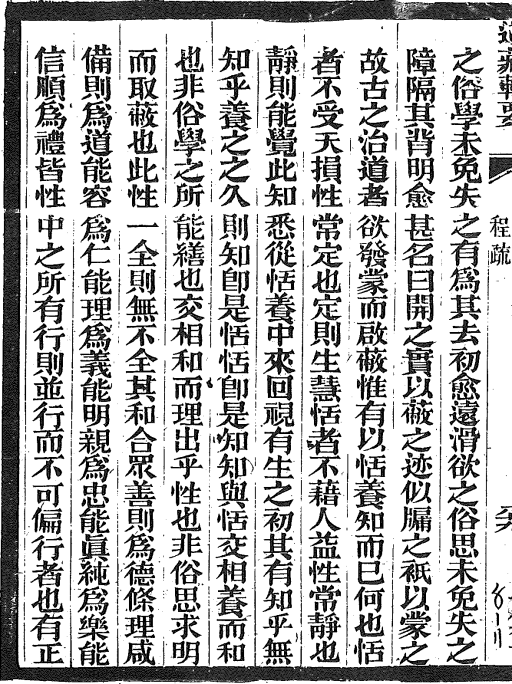 道藏輯要
程疏
之俗學未免失之有爲其去初愈遠滑欲之俗思未免失之
障隔其背明愈甚名曰開之實以蔽之迹似牖之祇以蒙之
故古之治道者欲發蒙而啟蔽惟有以恬養知而已何也恬
者不受天損性常定也定則生慧恬者不藉人益性常靜也
靜則能覺此知悉從恬養中來回視有生之初其有知乎無
知乎養之之久則知卽是恬恬卽是知知與恬交相養而和
也非俗學之所能繕也交相和而理出乎性也非俗思求明
而取蔽也此性一全則無不全其和合眾善則爲德條理咸
備則爲道能容爲仁能理爲義能明親爲忠能眞純爲樂能
信順爲禮皆性中之所有行則並行而不可偏行者也有正